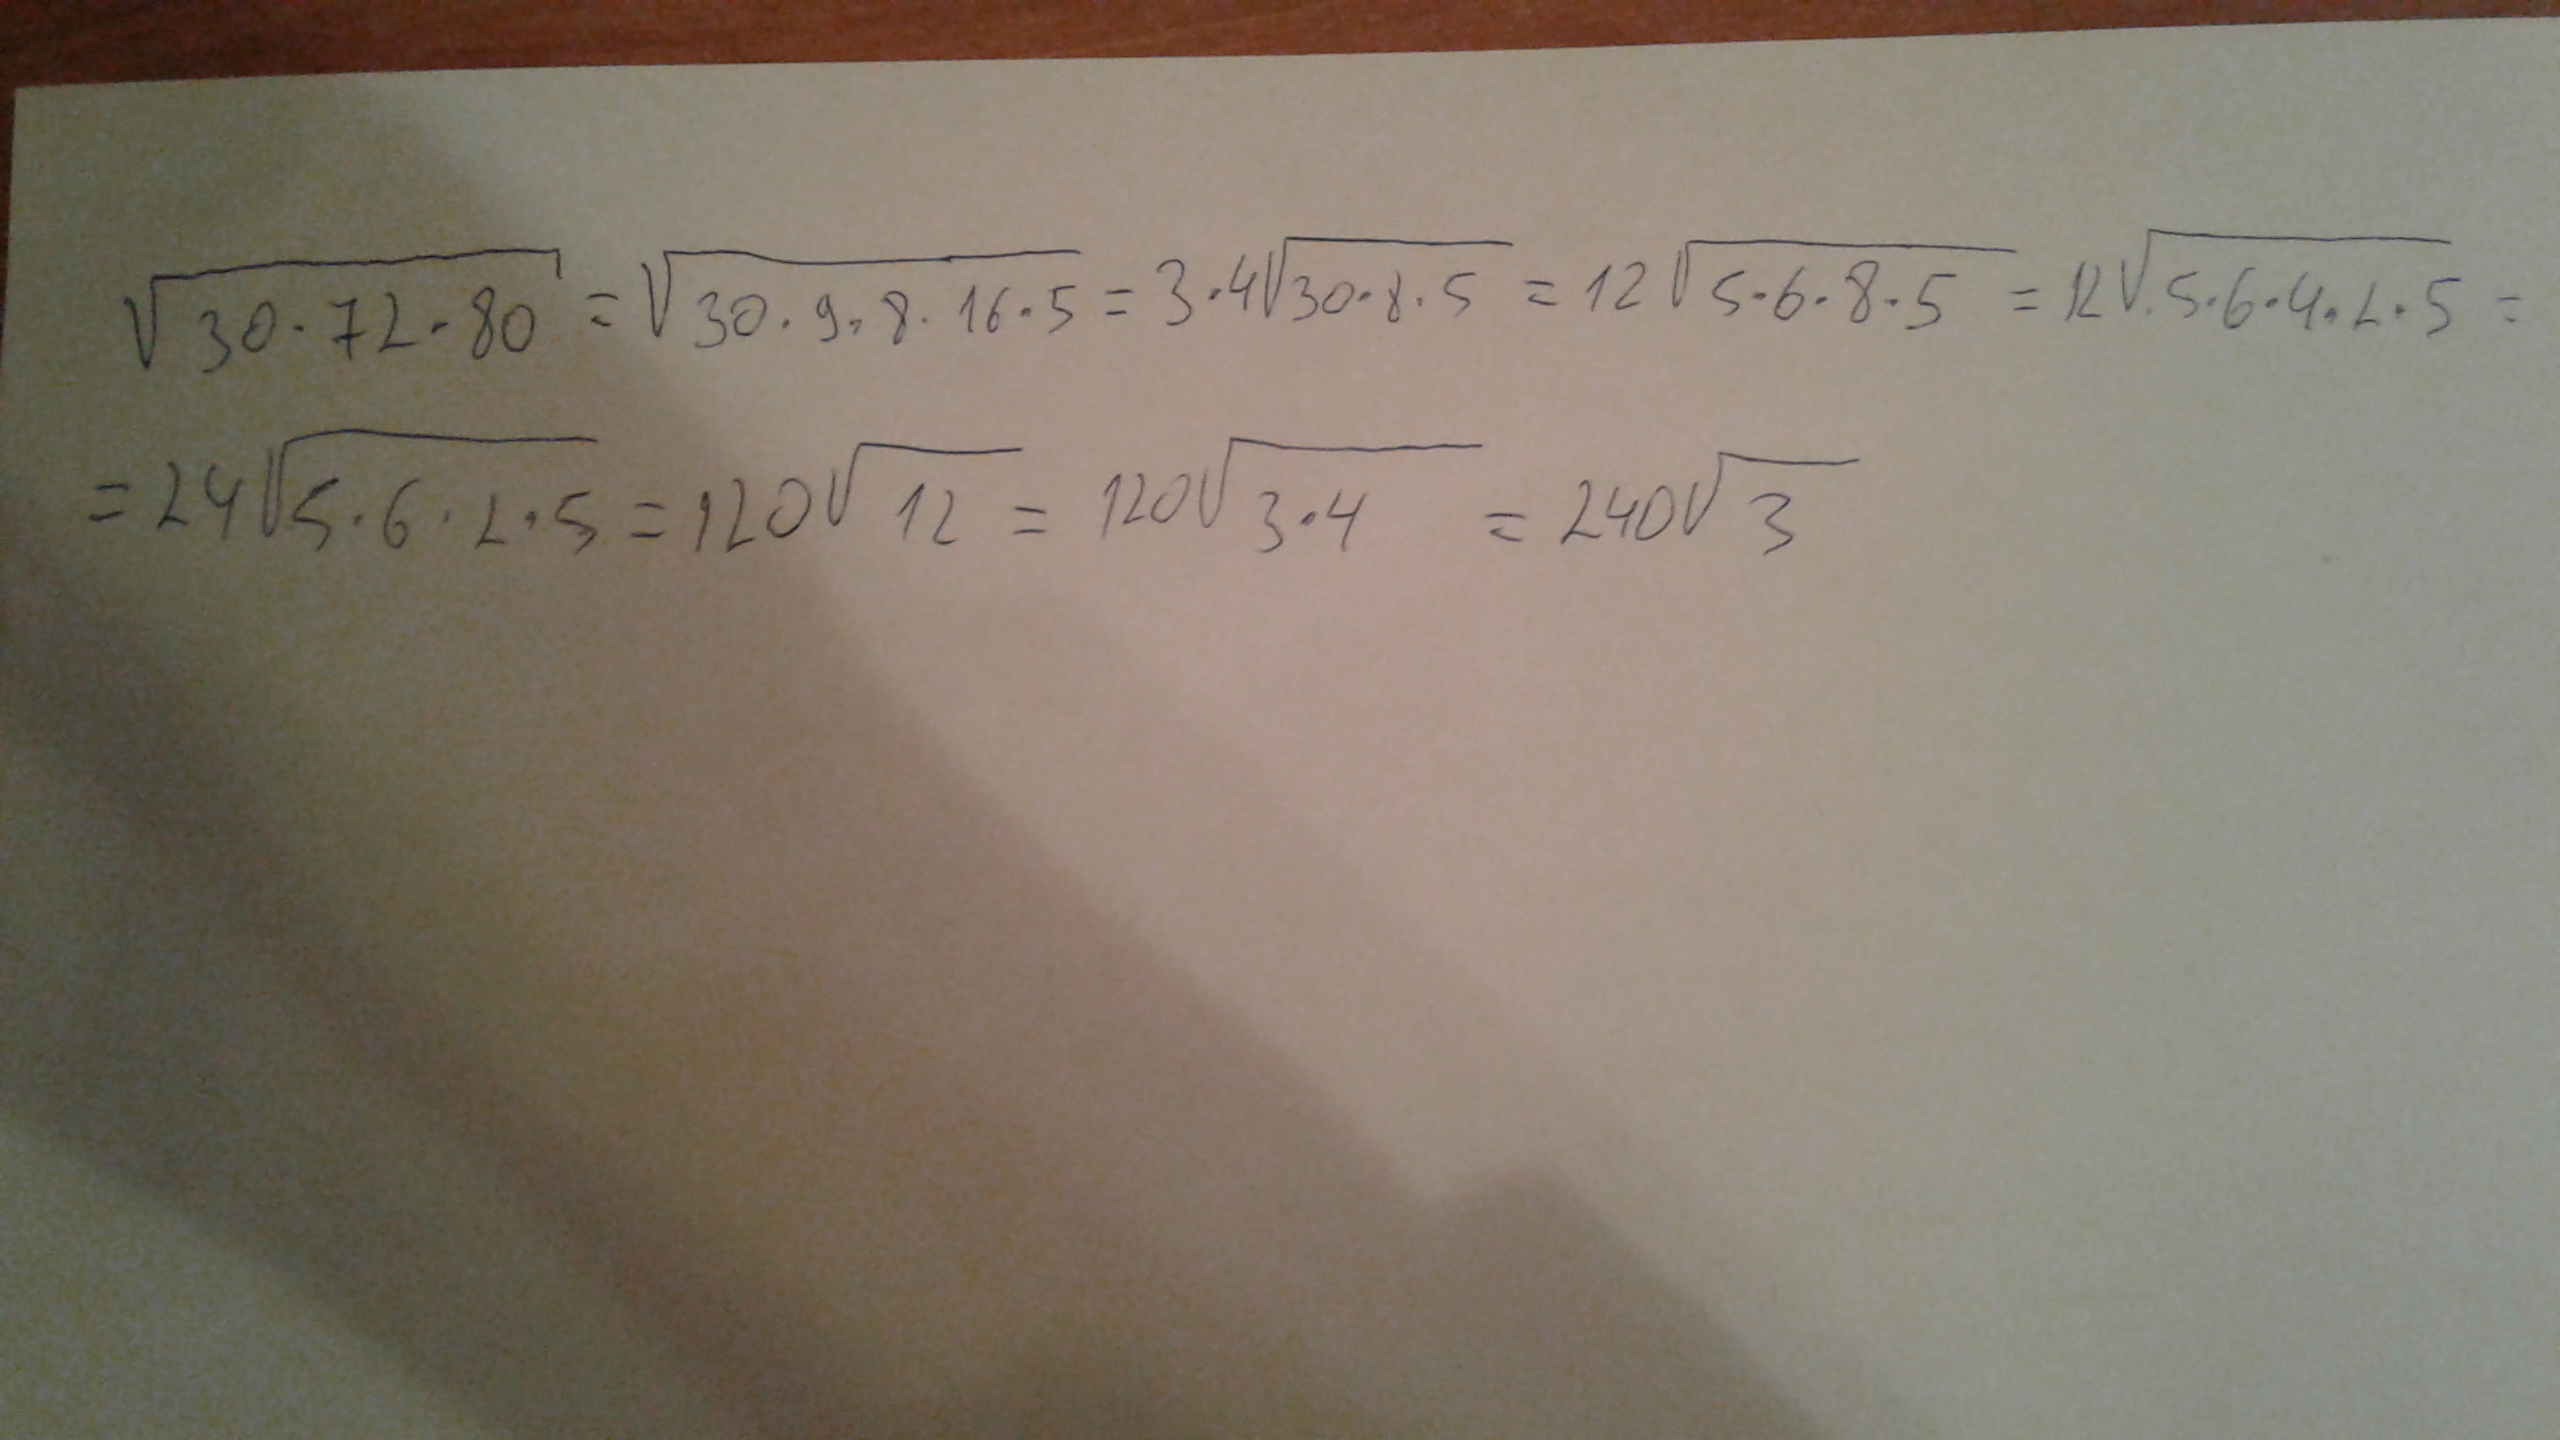 √30·72·80 = √30·9·8·16·5 = 3·4√30·8·5 = 12√5·6·8·5 = 12√5·6·4·2·5 =
= 24√5·6·2·5 = 120√12 = 120√3·4 = 240√3